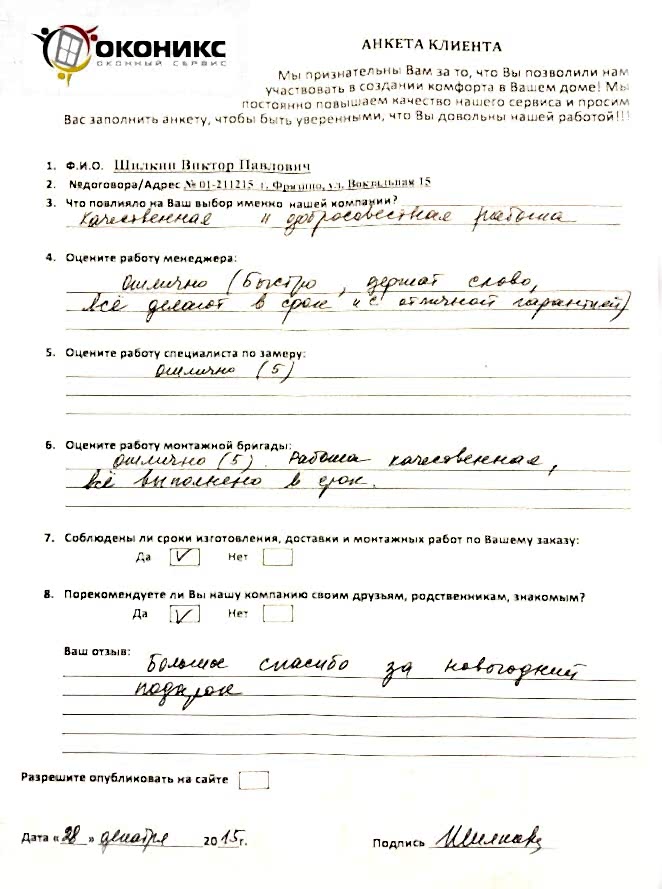 ОКОНИКС
ОКОННЫЙ СЕРВИС
АНКЕТА КЛИЕНТА
Мы признательны Вам за то, что Вы позволили нам
участвовать в создании комфорта в Вашем доме! Мы
постоянно повышаем качество нашего сервиса и просим
Вас заполнить анкету, чтобы быть уверенными, что Вы довольны нашей работой!!!
1. Ф.И.О. Шилкин Виктор Павлович
2. №договора/Адрес № 01-211215 г. Фрязино, ул. Вокзальная 15
3. Что повлияло на Ваш выбор именно нашей компании?
Качественная и добросовестная работа
4. Оцените работу менеджера:
отлично (быстро, держат слово,
всё делают в срок и с отличной гарантией)
5. Оцените работу специалиста по замеру:
отлично (5)
6. Оцените работу монтажной бригады:
отлично (5). Работа качественная,
всё выполнено в срок.
7. Соблюдены ли сроки изготовления, доставки и монтажных работ по Вашему заказу:
Да V Нет
8. Порекомендуете ли Вы нашу компанию своим друзьям, родственникам, знакомым?
Да V Нет
Ваш отзыв:
Большое спасибо за новогодний
подарок
Разрешите опубликовать на сайте
Дата «28» декабря 2015г. Подпись